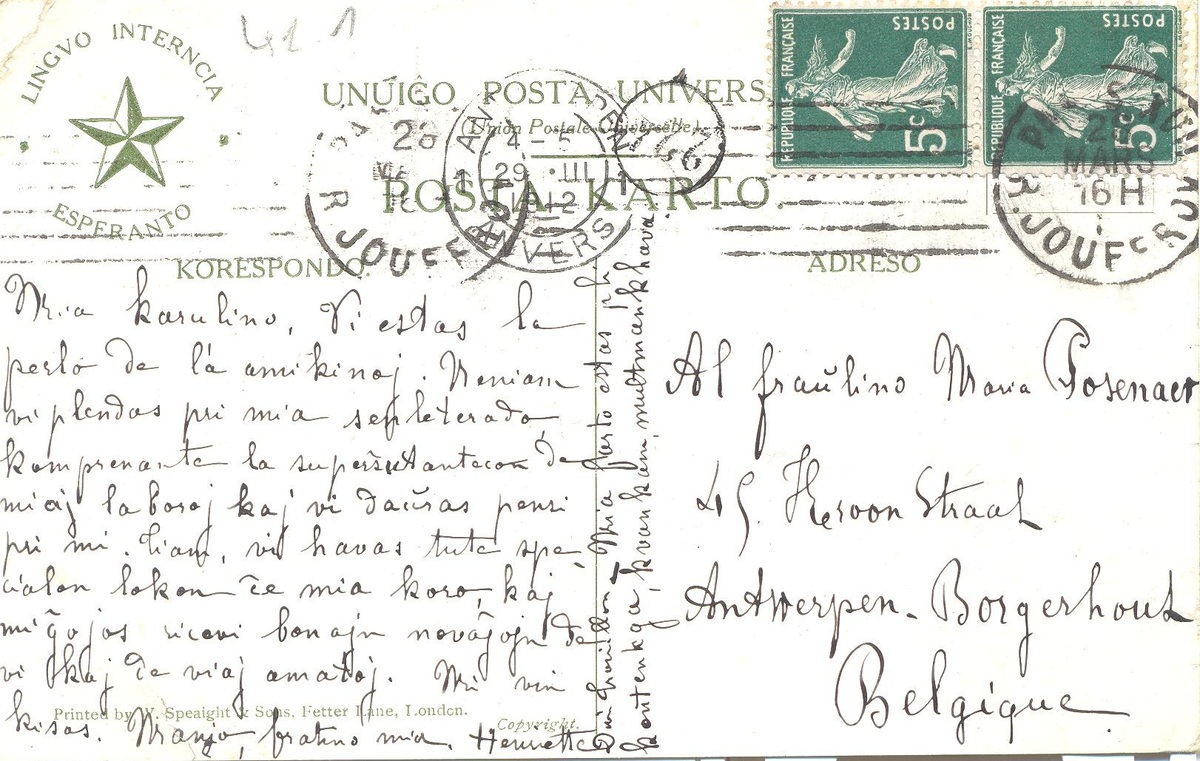 421
LINGVO INTERNCIA
ESPERANTO
UNUIĜO POSTA UNIVERS
(Union Postale Universelle)
POSTA KARTO.
KORESPONDO.
ADRESO
RÉPUBLIQUE FRANÇAISE
POSTES
5c
RÉPUBLIQUE FRANÇAISE
POSTES
5c
28
R. JOUFFROY
4-5
29 III
12
ANVERS
28
MARS
16 H
R. JOUFFROY
Mia karulino, Vi estas la
perlo de la amikinoj. Neniam
vi plendas pri mia senleterado,
komprenante la superŝutantecon de
miaj laboroj kaj vi daŭras pensi
pri mi. Tiam, vi havas tute spe
cialan lokon ĉe mia koro, kaj
mi ĝojos ricevi bonajn novaĵojn de
vi kaj de viaj amatoj. Mi vin
kisas. fratino mia. Henriette
Mia farto estas pli
kontentiga, kvankam multmankhava.
Printed by W. Speaight & Sons, Fetter Lane, London.
Copyright.
Al fraŭlino Maria Posenaer
45 Straat
Antwerpen-Borgerhout
Belgique